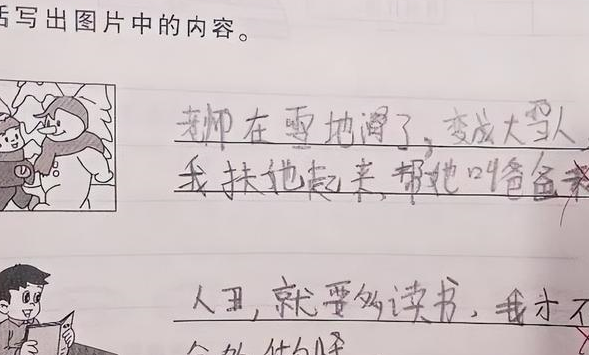 话写出图片中的内容。
老师在雪地滑了，变成大雪人，
我扶她起来，帮她叫爸爸来
人丑，就要多读书，我才不
会